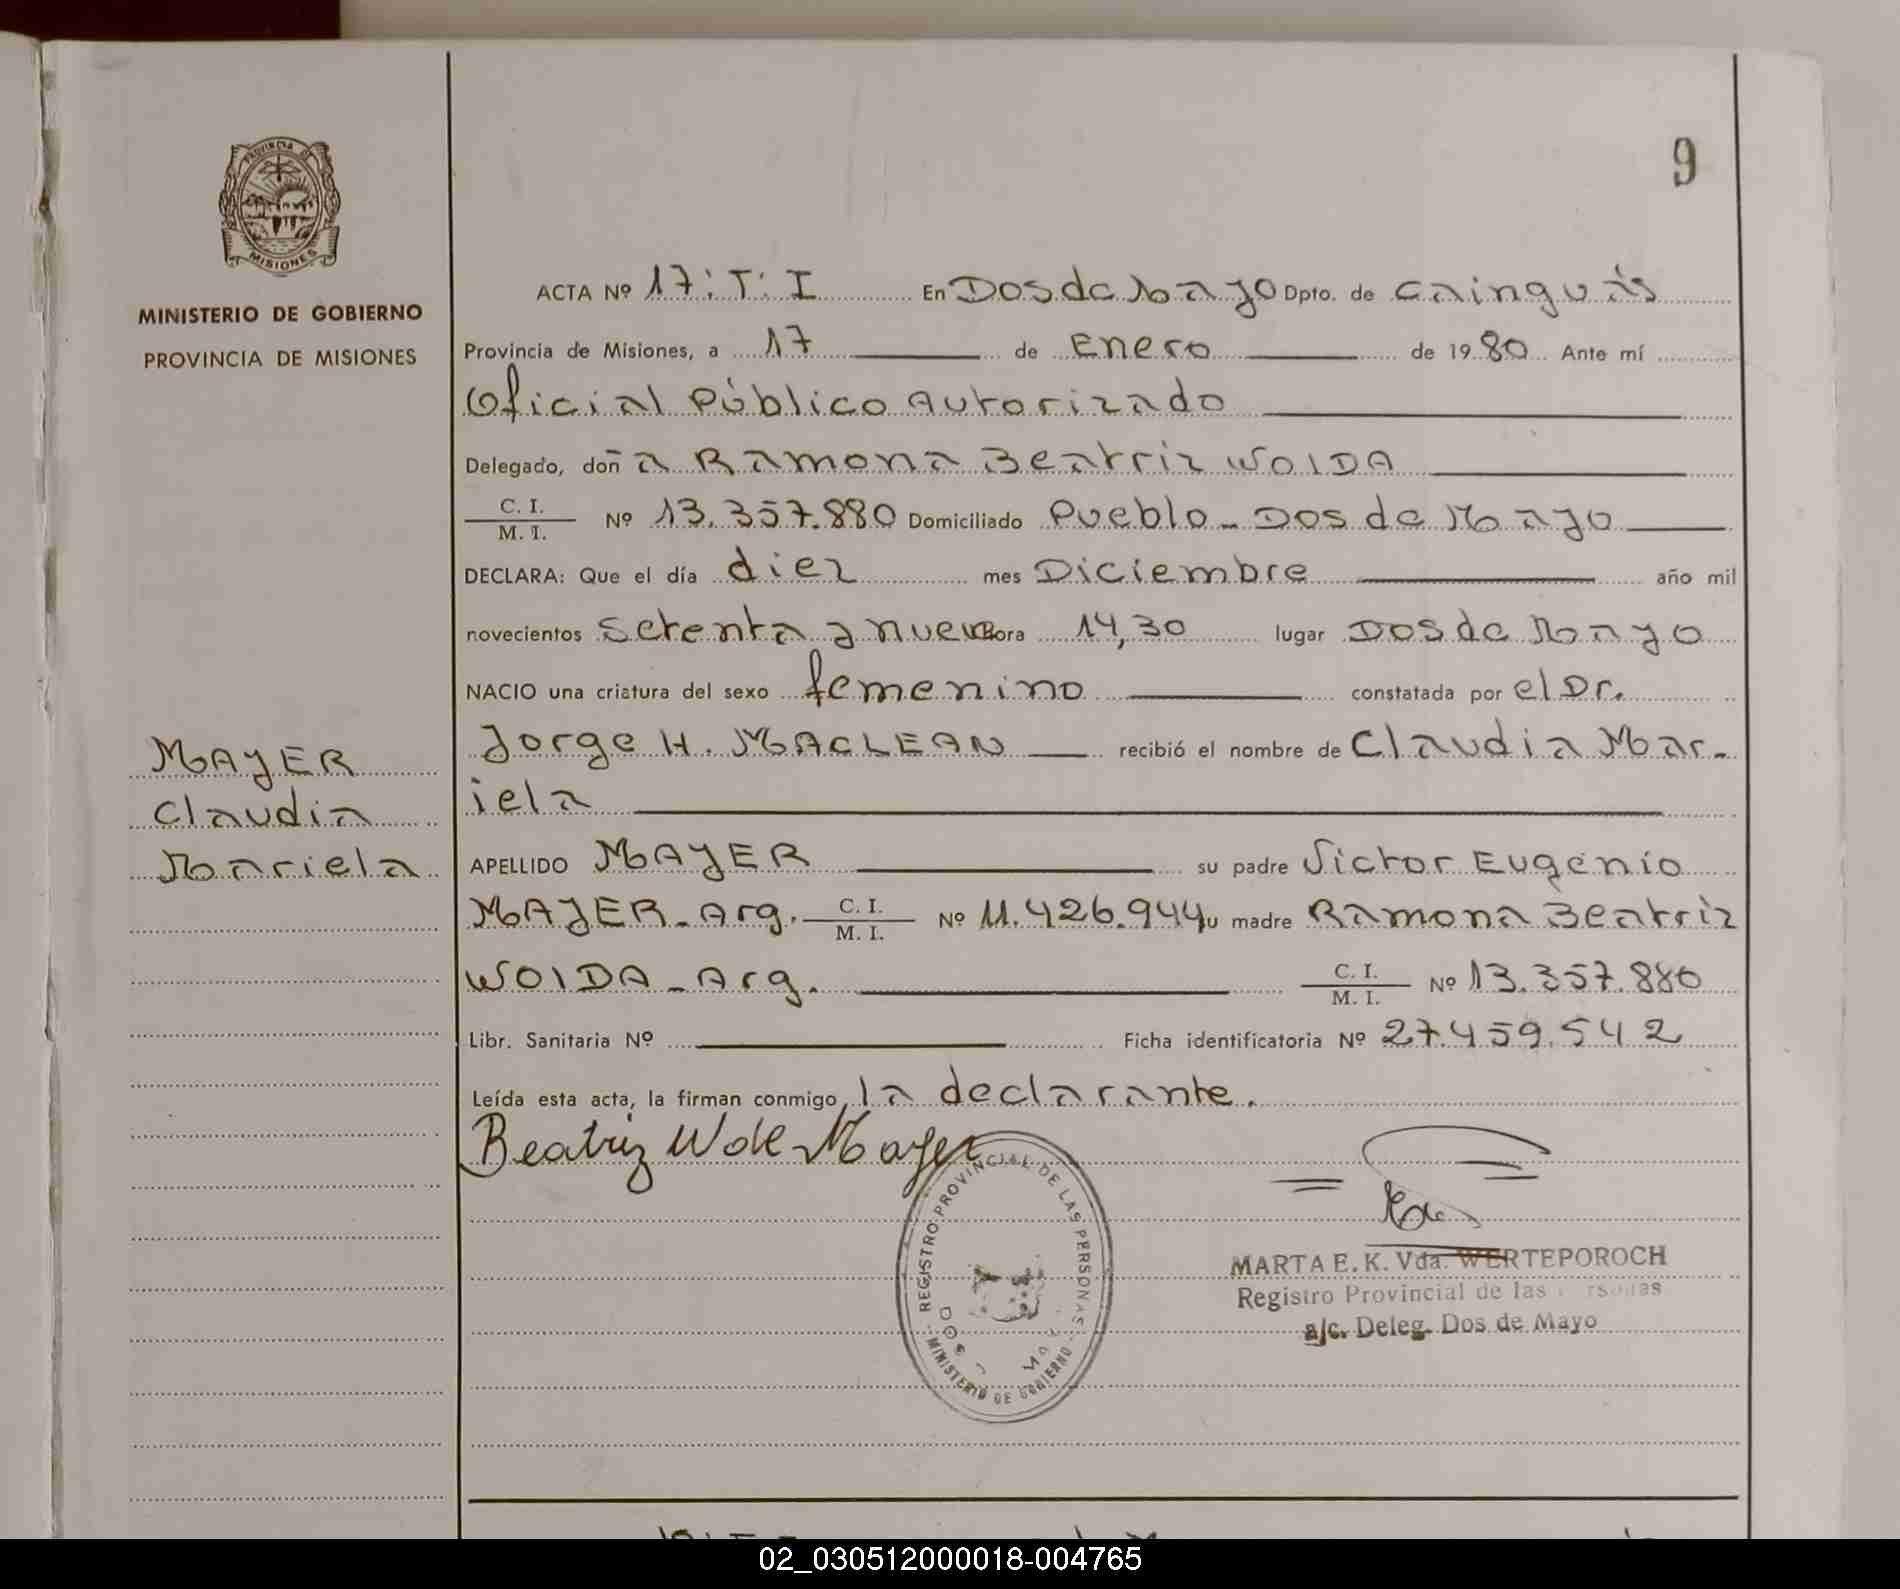 9
PROVINCIA DE
MISIONES
MINISTERIO DE GOBIERNO
PROVINCIA DE MISIONES
ACTA Nº 17: T: I En Dos de Mayo Dpto. de Cainguás
Provincia de Misiones, a 17 de Enero de 1980 Ante mí
Oficial Público Autorizado
Delegado, doña Ramona Beatriz WOIDA
C. I.
M. I. Nº 13.357.880 Domiciliado Pueblo - Dos de Mayo
DECLARA: Que el día diez mes Diciembre año mil
novecientos setenta y nueve hora 14,30 lugar Dos de Mayo
NACIO una criatura del sexo femenino constatada por el Dr.
Jorge H. MACLEAN recibió el nombre de Claudia Mar-
iela
MAYER
Claudia
Mariela
APELLIDO MAYER su padre Victor Eugenio
MAYER - Arg. C. I. M. I. Nº 11.426.944 su madre Ramona Beatriz
WOIDA - Arg. C. I. M. I. Nº 13.357.880
Libr. Sanitaria Nº Ficha identificatoria Nº 27.459.542
Leída esta acta, la firman conmigo, la declarante.
Beatriz W de Mayer
REGISTRO PROVINCIAL DE LAS PERSONAS
MINISTERIO DE GOBIERNO
MARTA E. K. Vda. WERTEPOROCH
Registro Provincial de las Personas
a/c. Deleg. Dos de Mayo
02_030512000018-004765